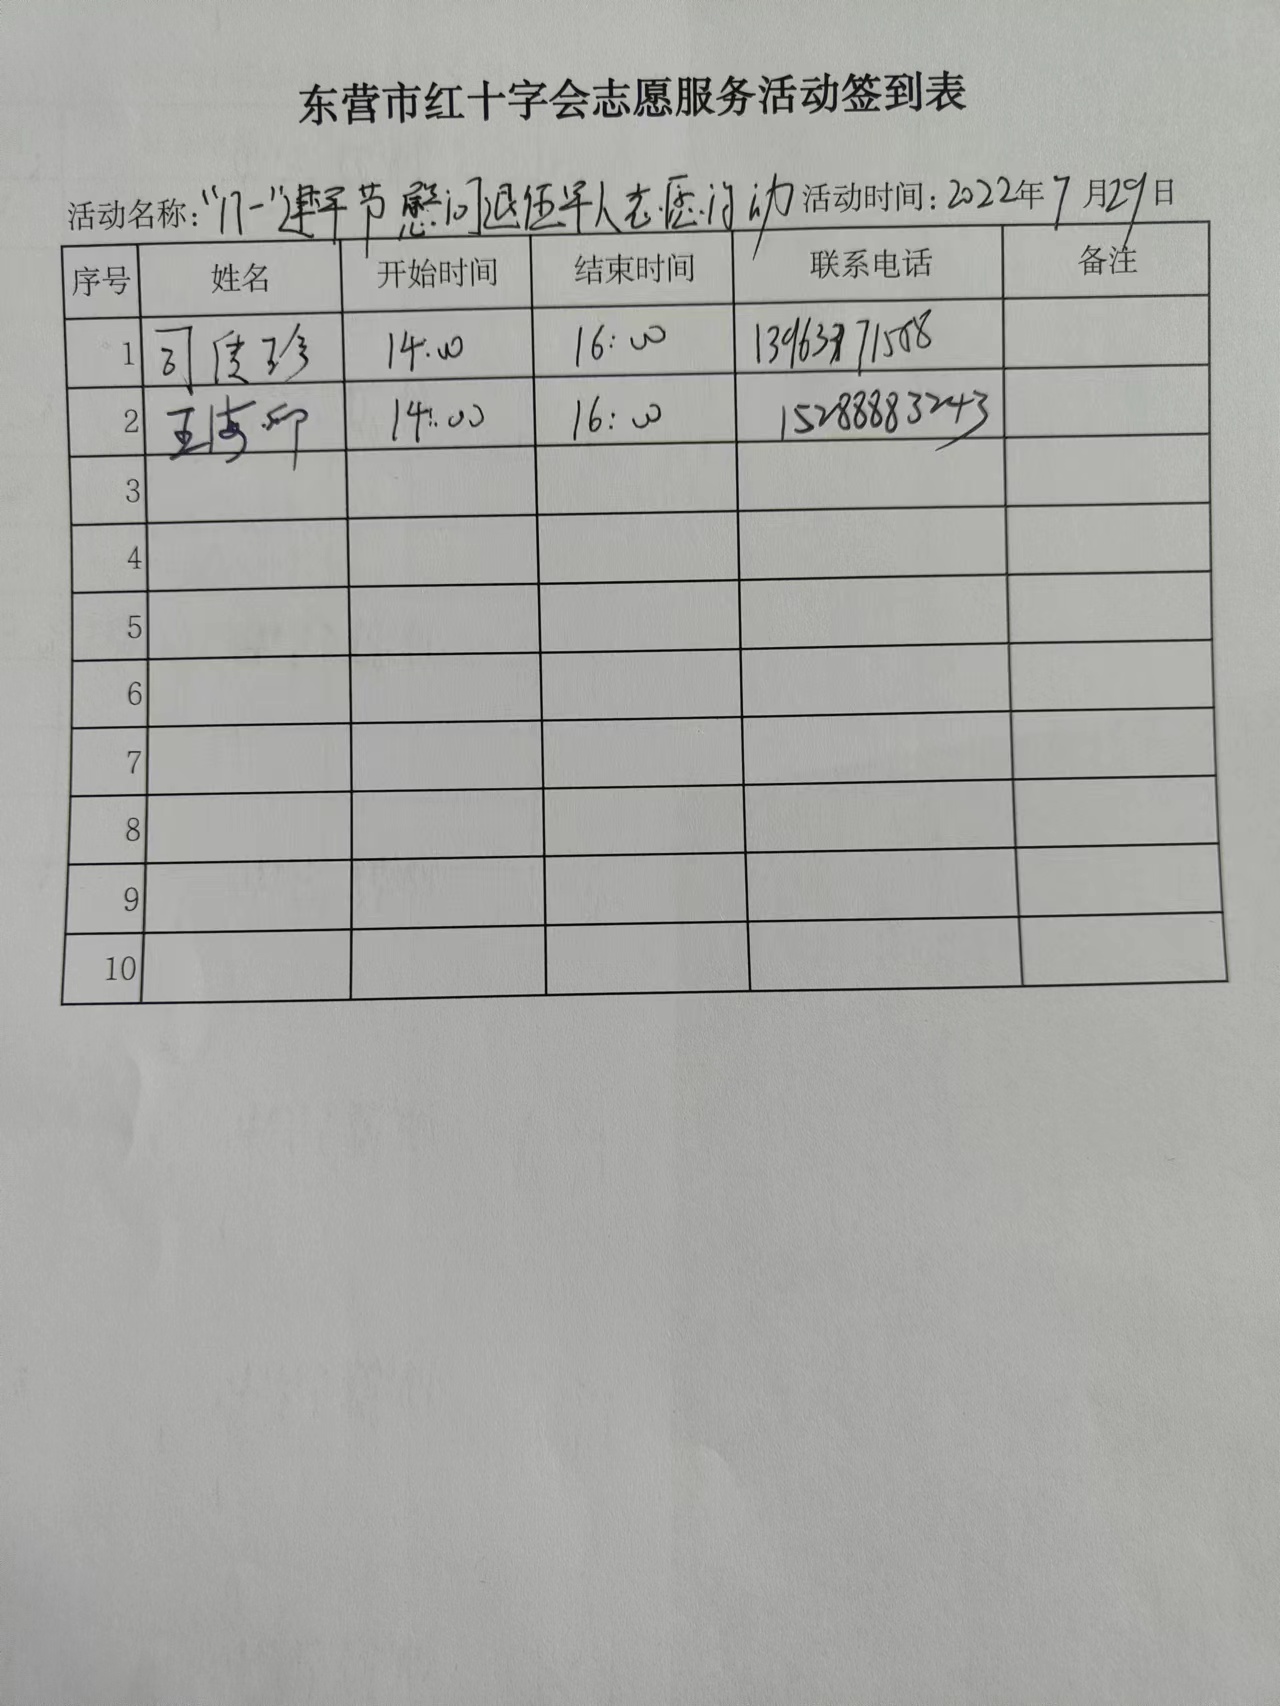 东营市红十字会志愿服务活动签到表
活动名称："八一"建军节慰问退伍军人志愿活动 活动时间：2022年7月29日
序号 姓名 开始时间 结束时间 联系电话 备注
1 司 珍 14:00 16:00
2 王海 14:00 16:00 15288883243
3
4
5
6
7
8
9
10